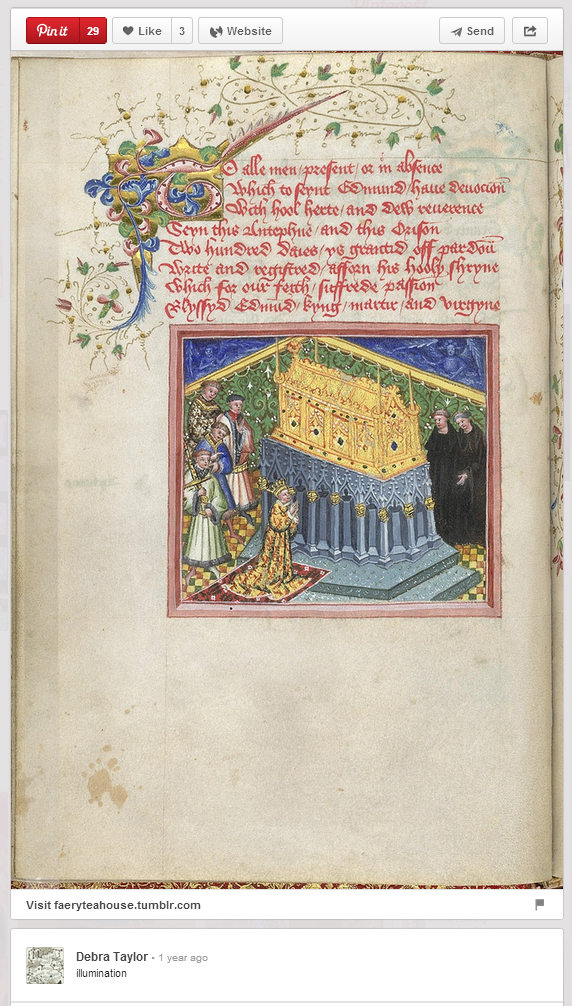 Pin it 29 Like 3 Website Send
To alle men / present / or in absence
Which to seynt Edmund / haue deuocion
With hool herte / and dew reuerence
Seyn this Antephne / and this Orison
Two hundred daies / ys grantid off pardon
Write and registred / afforn his hooly shryne
Which for our feith / suffrede passion
Blyssyd Edmud / kyng / martir / and virgyne
Visit faeryteahouse.tumblr.com
Debra Taylor • 1 year ago
illumination